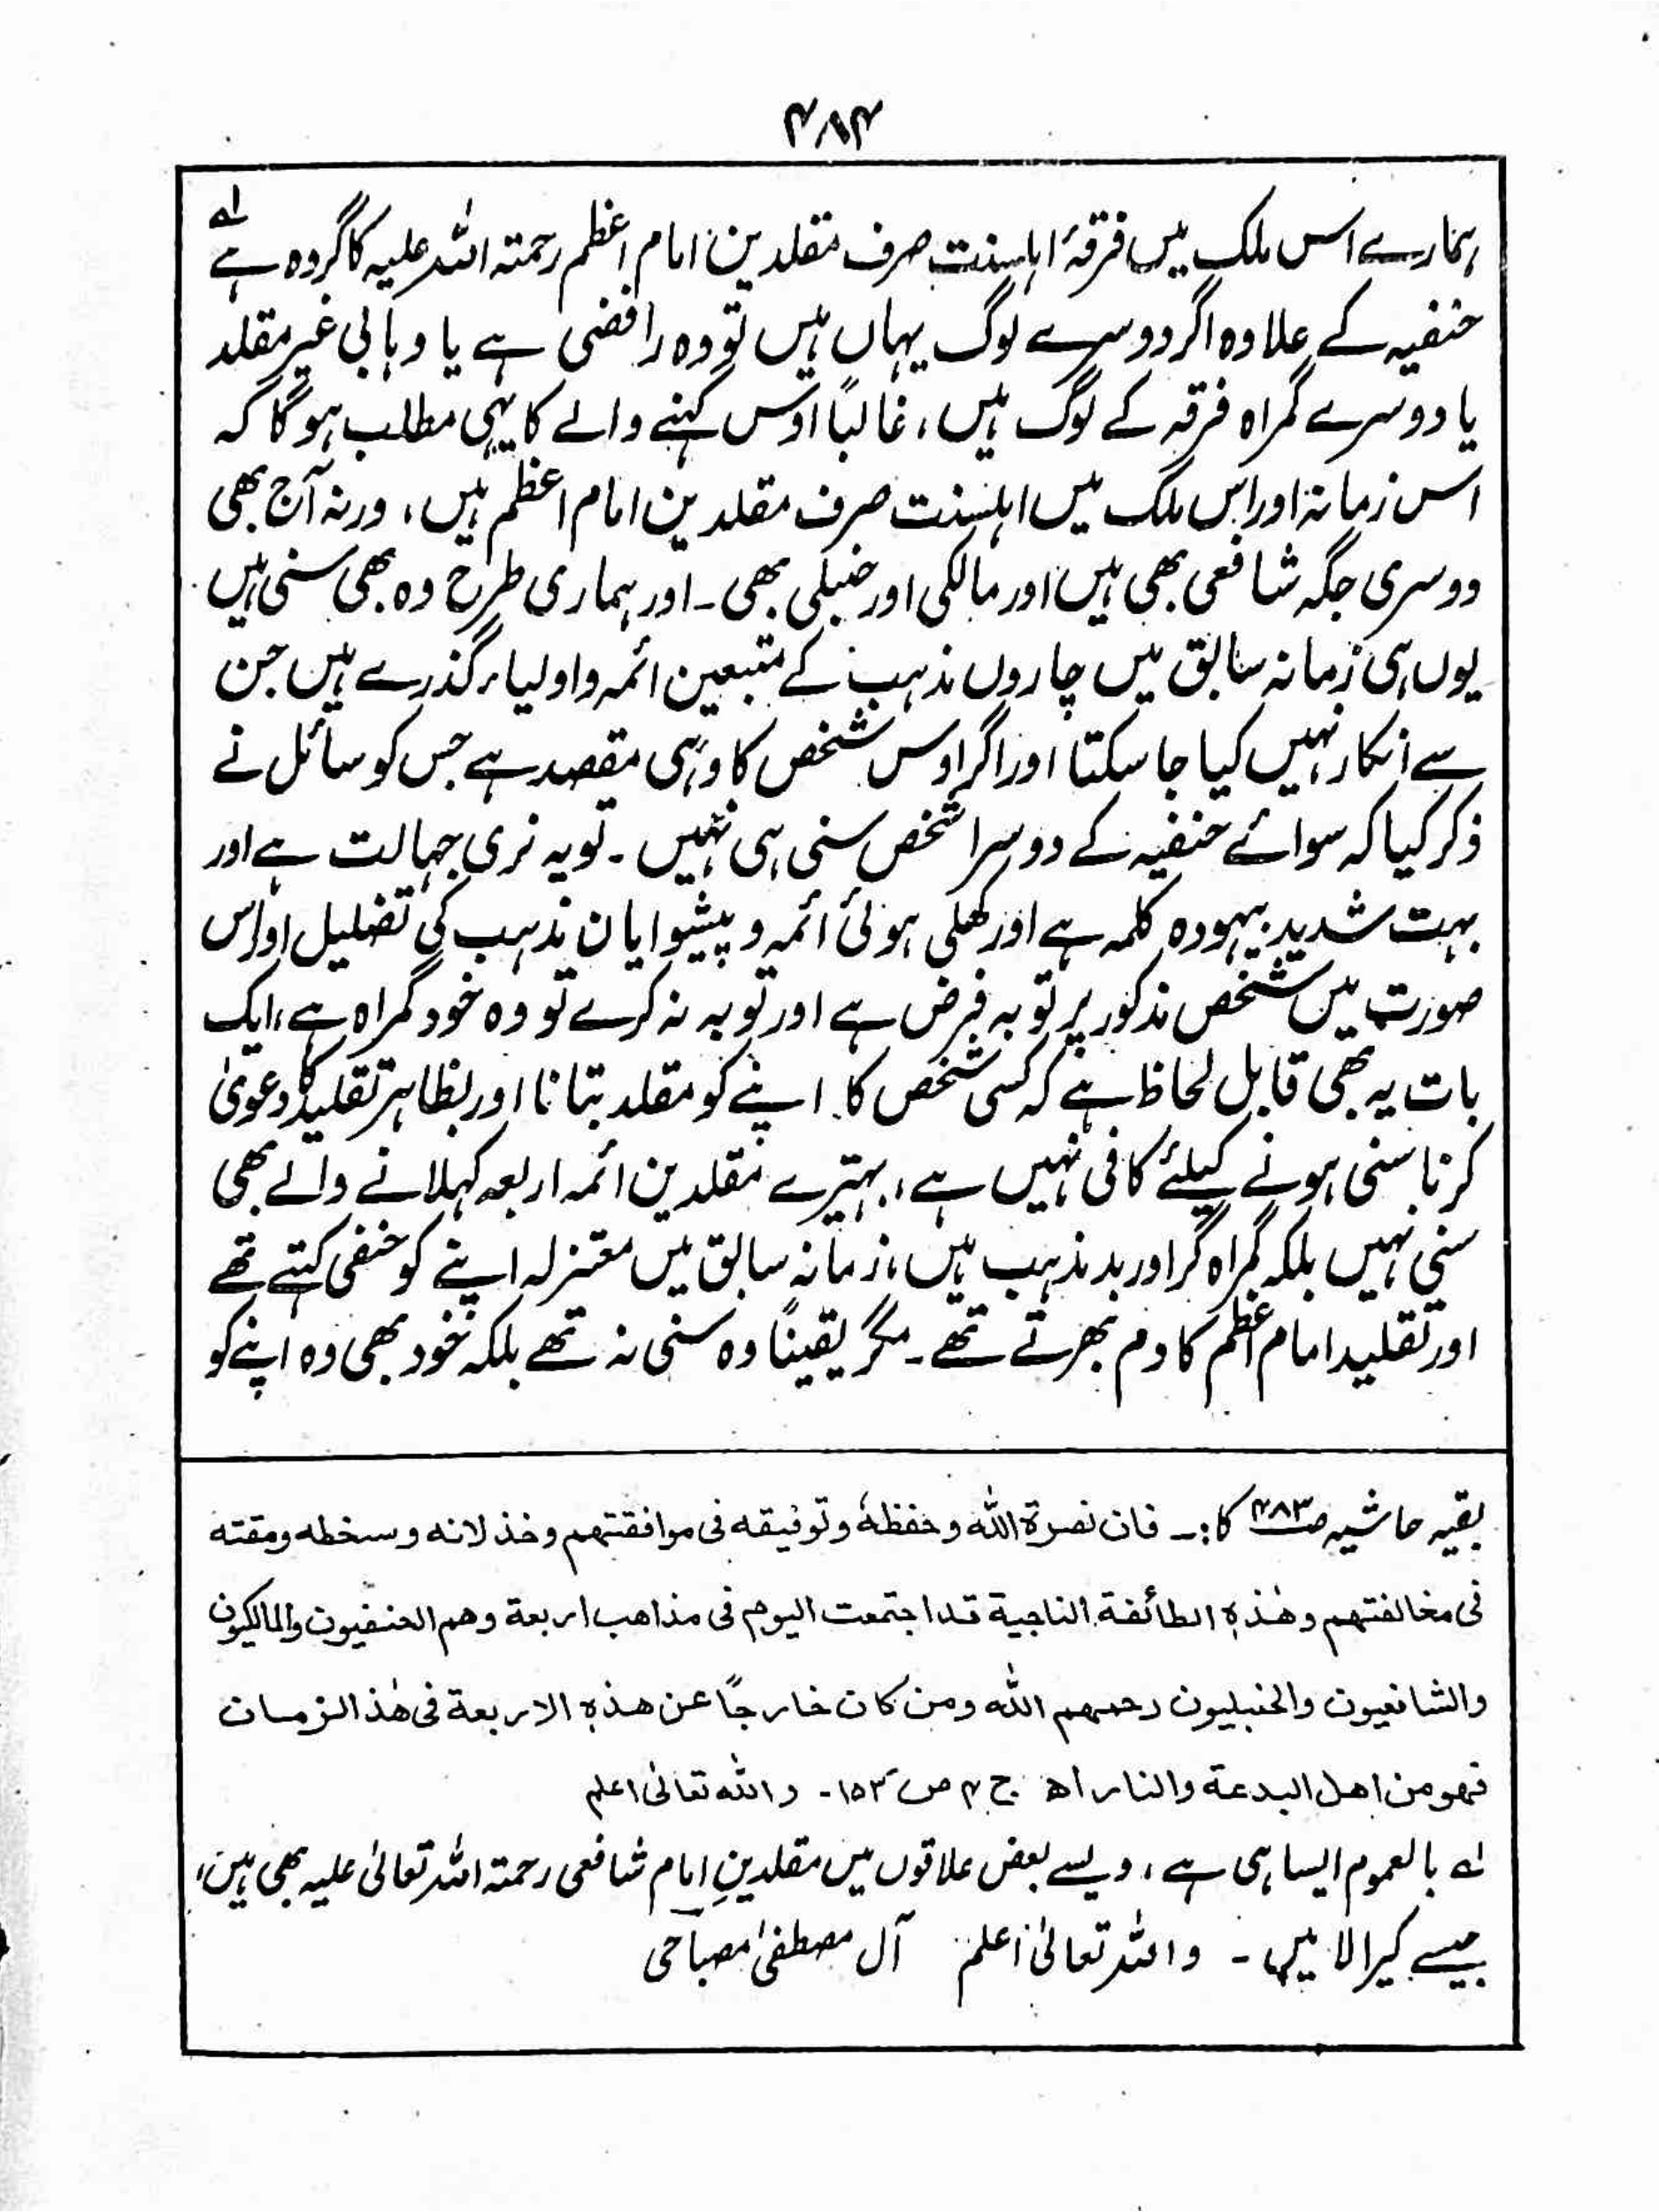 ۴۸۴
ہمارے اس ملک میں فرقۂ اہلسنت صرف مقلدین امام اعظم رحمۃ اللہ علیہ کا گروہ ہے ؂۱
حنفیہ کے علاوہ اگر دوسرے لوگ یہاں ہیں تو وہ رافضی ہے یا وہابی غیر مقلد
یا دوسرے گمراہ فرقہ کے لوگ ہیں، غالباً اوس کہنے والے کا یہی مطلب ہوگا کہ
اس زمانہ اور اس ملک میں اہلسنت صرف مقلدین امام اعظم ہیں، ورنہ آج بھی
دوسری جگہ شافعی بھی ہیں اور مالکی اور حنبلی بھی۔ اور ہماری طرح وہ بھی سنی ہیں
یوں ہی زمانہ سابق میں چاروں مذہب کے متبعین ائمہ و اولیاء گذرے ہیں جن
سے انکار نہیں کیا جا سکتا اور اگر اوس شخص کا وہی مقصد ہے جس کو سائل نے
ذکر کیا کہ سوائے حنفیہ کے دوسرا شخص سنی ہی نہیں۔ تو یہ نری جہالت ہے اور
بہت شدید بیہودہ کلمہ ہے اور کھلی ہوئی ائمہ و پیشوایان مذہب کی تضلیل اور اس
صورت میں شخص مذکور پر توبہ فرض ہے اور توبہ نہ کرے تو وہ خود گمراہ ہے، ایک
بات یہ بھی قابل لحاظ ہے کہ کسی شخص کا اپنے کو مقلد بتانا اور بظاہر تقلید کا دعویٰ
کرنا سنی ہونے کیلئے کافی نہیں ہے، بہتیرے مقلدین ائمہ اربعہ کہلانے والے بھی
سنی نہیں بلکہ گمراہ گر اور بد مذہب ہیں، زمانہ سابق میں معتزلہ اپنے کو حنفی کہتے تھے
اور تقلید امام اعظم کا دم بھرتے تھے۔ مگر یقیناً وہ سنی نہ تھے بلکہ خود بھی وہ اپنے کو
بقیہ حاشیہ صـ۴۸۳ کا:۔ فان نصرۃ اللہ و حفظہٗ و توفیقہ فی موافقتھم و خذلانہ و سخطہ و مقتہ
فی مخالفتھم و ھٰذہٖ الطائفۃ الناجیۃ قد اجتمعت الیوم فی مذاھب اربعۃ و ھم الحنفیون والمالکیون
والشافعیون والحنبلیون رحمھم اللہ و من کان خارجًا عن ھذہٖ الاربعۃ فی ھٰذ الزمان
فھو من اھل البدعۃ والنار اھ ج ۴ ص ۱۵۳۔ واللہ تعالیٰ اعلم
؂۱ بالعموم ایسا ہی ہے، ویسے بعض علاقوں میں مقلدینِ امام شافعی رحمۃ اللہ تعالیٰ علیہ بھی ہیں،
جیسے کیرالا میں۔ واللہ تعالیٰ اعلم آل مصطفیٰ مصباحی